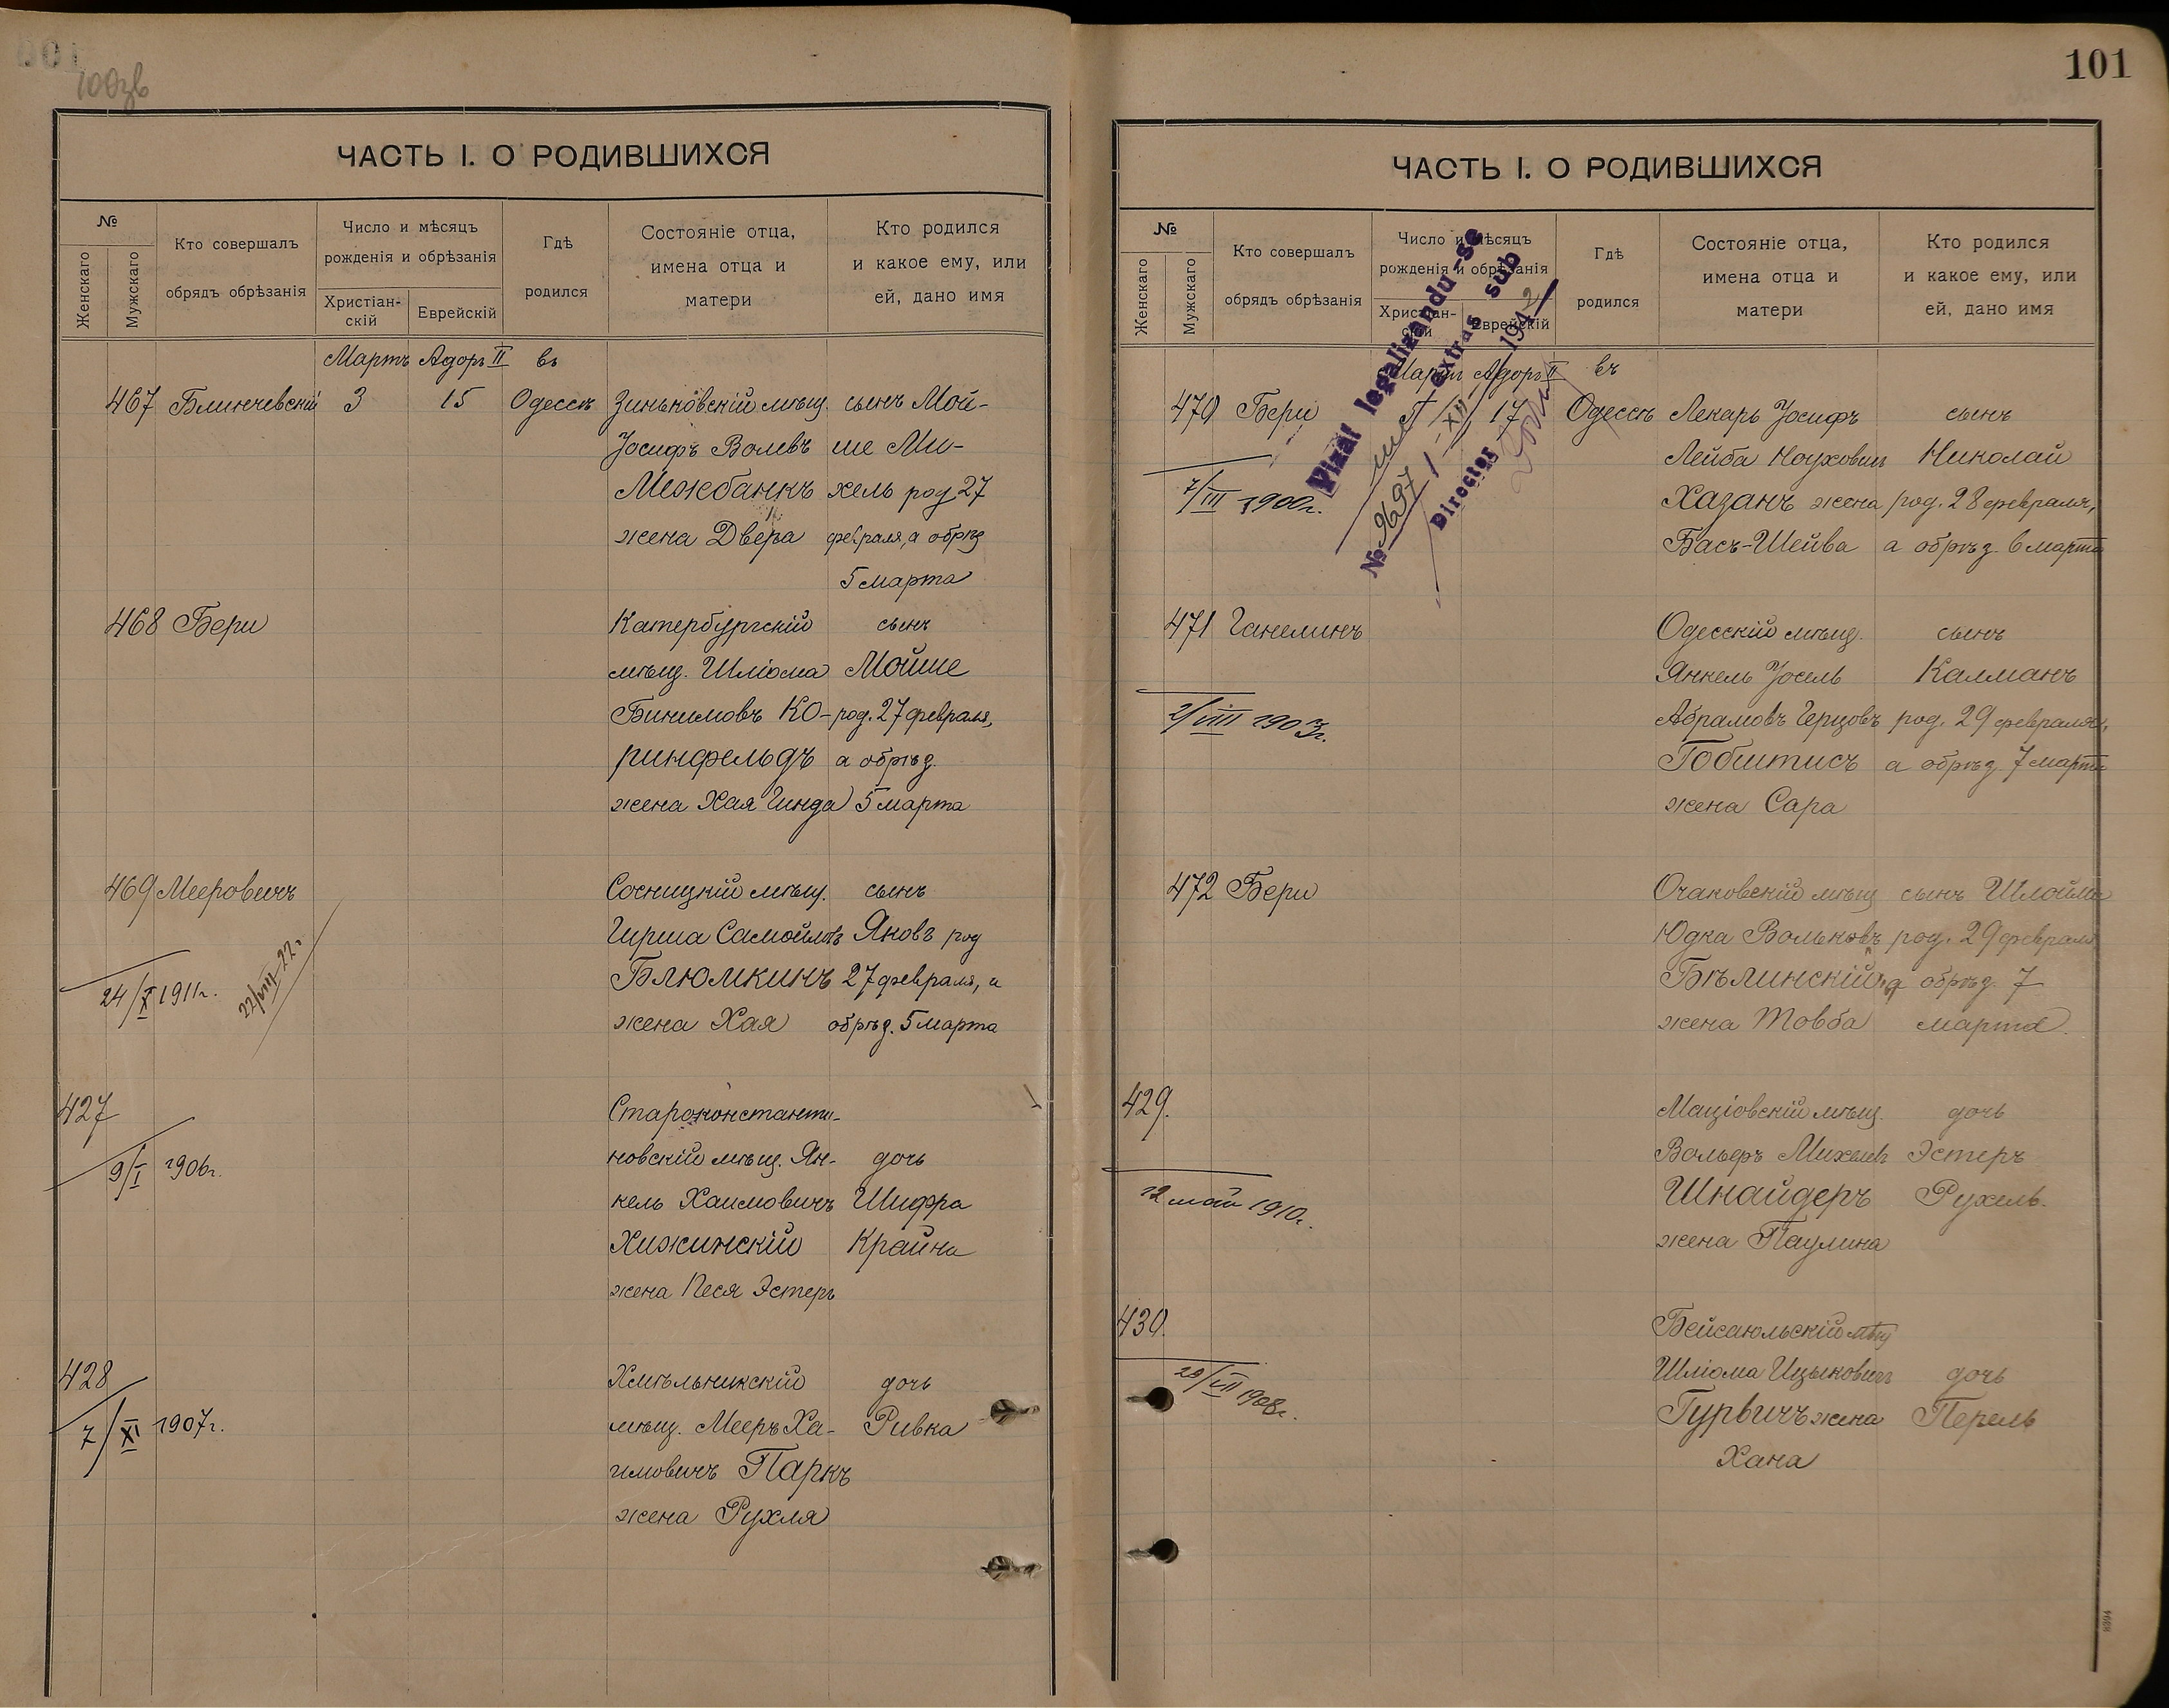 100зв
ЧАСТЬ I. О РОДИВШИХСЯ
№
Женскаго
Мужскаго
Кто совершалъ
обрядъ обрѣзанія
Число и мѣсяцъ
рожденія и обрѣзанія
Христіан-
скій
Еврейскій
Гдѣ
родился
Состояніе отца,
имена отца и
матери
Кто родился
и какое ему, или
ей, дано имя
Мартъ Адоръ II въ
467 Блинчевскій 3 15 Одессѣ Зиньковскій мѣщ. сынъ Мой-
Іосифъ Волевъ ше Ми-
Межбанкъ хель род 27
жена Двера февраля, а обрѣз
5 марта
468 Бери Катербургскій сынъ
мѣщ. Шліома Мойше
Бинимовъ Ко- род. 27 февраля,
ринфельдъ а обрѣз.
жена Хая Гинда 5 марта
469 Мееровичъ Сосницкій мѣщ. сынъ
Гирша Самойловъ Яковъ род
Блюмкинъ 27 февраля, а
жена Хая обрѣз. 5 марта
24/X 1911г.
22/VIII 22г
427 Староконстанти-
новскій мѣщ. Ян- дочь
9/I 1906г.
кель Хаимовичъ Шифра
Хижинскій Крайна
жена Песя Эстеръ
428 Хмѣльникскій дочь
мѣщ. Мееръ Ха- Ривка
7/XI 1907г.
имовичъ Паркъ
жена Рухля
101
ЧАСТЬ I. О РОДИВШИХСЯ
№
Женскаго
Мужскаго
Кто совершалъ
обрядъ обрѣзанія
Число и мѣсяцъ
рожденія и обрѣзанія
Христіан-
скій
Еврейскій
Гдѣ
родился
Состояніе отца,
имена отца и
матери
Кто родился
и какое ему, или
ей, дано имя
Vizat legalizandu-se
extras sub
№ 9697 1-XII 1942
Director
Мартъ Адоръ II въ
470 Бери 17 Одессѣ Лекарь Іосифъ сынъ
Лейба Ноуховичъ Николай
7/III 1900г.
Хазанъ жена род. 28 февраля,
Бась-Шейва а обрѣз. 6 марта
471 Ганелинъ Одесскій мѣщ. сынъ
Янкель Іосель Калманъ
2/VIII 1903г.
Абрамовъ Герцовъ род. 29 февраля,
Гобштисъ а обрѣз. 7 марта
жена Сара
472 Бери Очаковскій мѣщ сынъ Шлойма
Юдка Вольковъ род. 29 февраля
Бѣлинскій, а обрѣз. 7
жена Товба марта.
429. Маціовскій мѣщ. дочь
Вольфъ Михелевъ Эстеръ
12 мая 1910г.
Шнайдеръ Рухель.
жена Паулина
430. мѣщ
Шліома Ицыковичъ дочь
20/VII 1908г.
Гурвичъ жена Перель
Хана